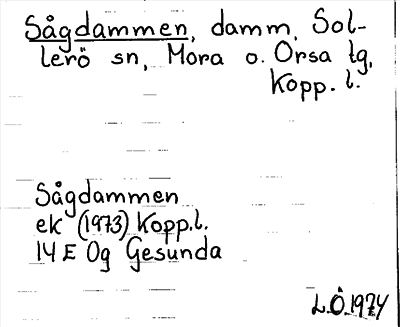 Sågdammen, damm, Sol-
lerö sn, Mora o. Orsa tg,
Kopp. l.
Sågdammen
ek (1973) Kopp.l.
14 E 0g Gesunda
L.Ö.1974